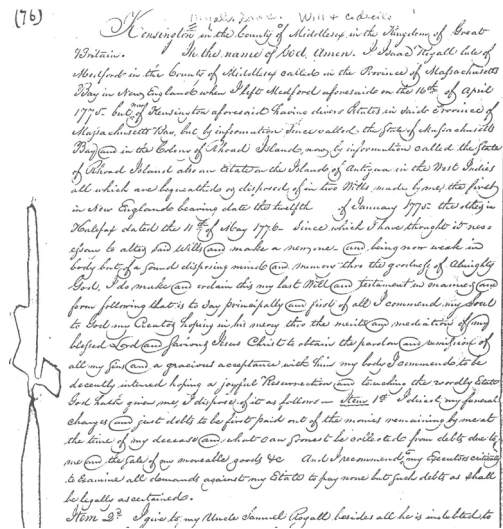 (76)
Royall Isaac. Will & codicils
Kensington in the County of Middlesex in the Kingdom of Great
Britain. In the name of God, Amen. I Isaac Royall late of
Medford in the County of Middlesex called in the Province of Massachusetts
Bay in New England when I left Medford aforesaid on the 16th of April
1775 but now of Kensington aforesaid having divers Estates in said Province of
Massachusetts Bay, but by information since called the State of Massachusetts
Bay and in the Colony of Rhoad Island, now by information called the State
of Rhoad Island also an Estate on the Island of Antigua in the West Indies
all which are bequeathed or disposed of in two Wills made by me the first
in New England bearing date the twelfth of January 1775 the other in
Halifax dated the 11th of May 1776 Since which I have thought it nes=
essary to alter said Wills and make a new one and being now weak in
body but of a sound disposing mind and memory thro the goodness of Almighty
God, I do make and ordain this my last Will and Testament in manner and
form following that is to say principally and first of all I commend my Soul
to God my Creator hoping in his mercy thro the merits and mediation of my
blessed Lord and Saviour Jesus Christ to obtain the pardon and remission of
all my Sins and a gracious acceptance with him my body I commend to be
decently interred hoping a joyful Resurrection and touching the wordly Estate
God hath given me, I dispose of it as follows — Item 1st I direct my funeral
charges and just debts to be first paid out of the monies remaining by me at
the time of my decease and what can soonest be collected from debts due to
me and the Sale of my moveable goods &c And I recommend my Executors
to examine all demands against my Estate to pay none but such debts as shall
be legally ascertained.
Item 2d I give to my Uncle Samuel Royall besides all he is indebted to